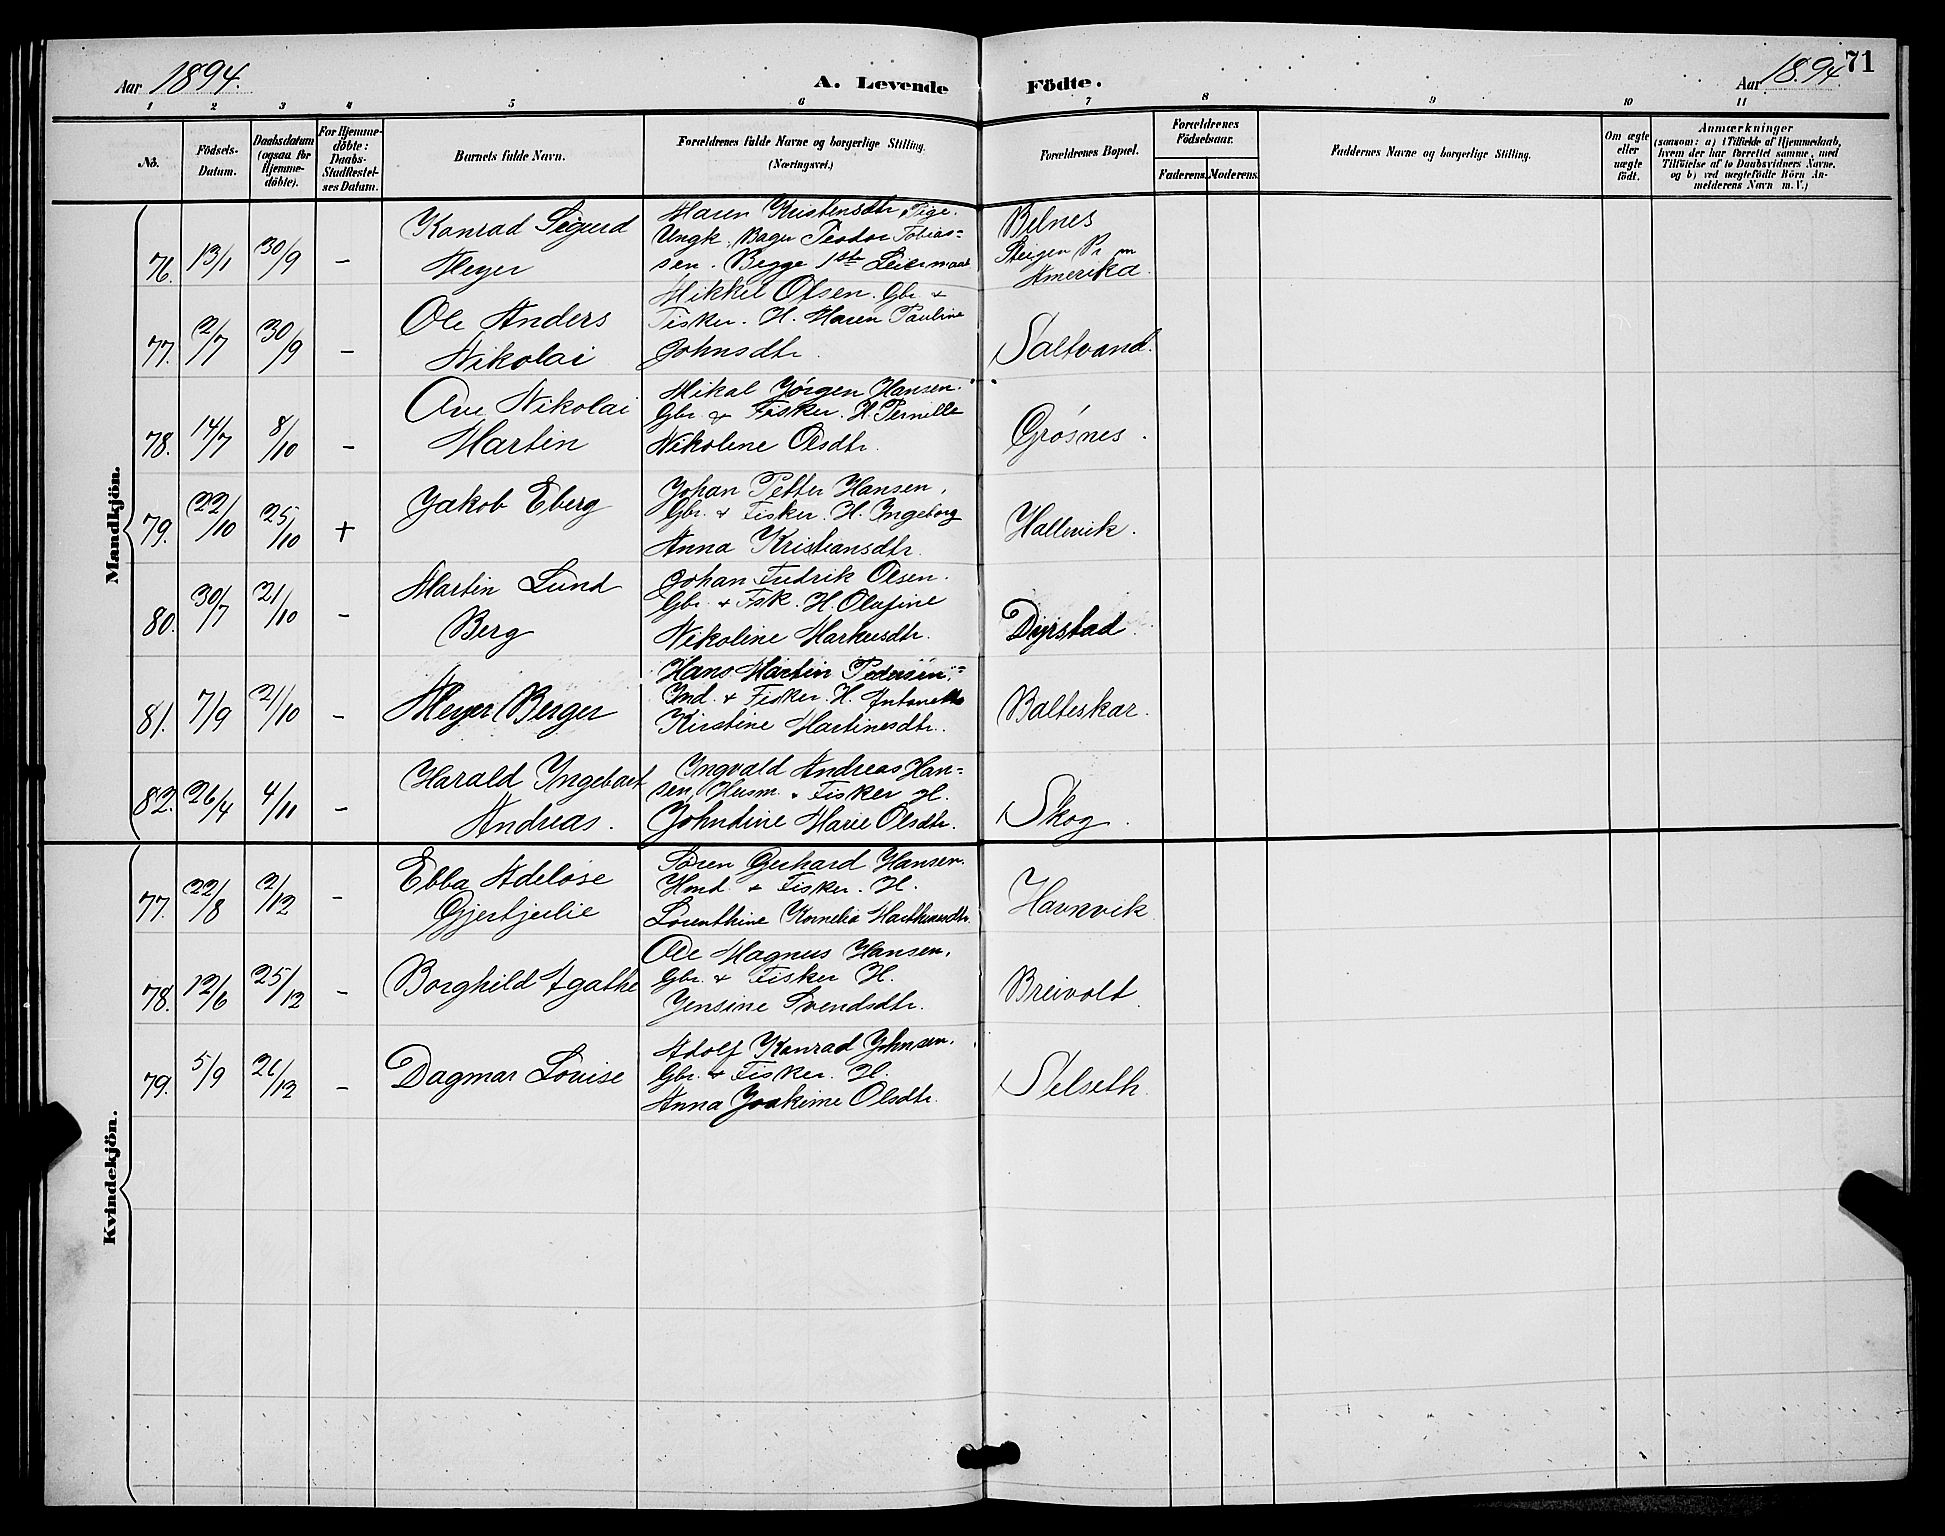 Aar 1894. A. Levende Födte. Aar 1894. 71
1 2 3 4 5 6 7 8 9 10 11
No. Födsels-Datum. Daabsdatum (ogsaa for Hjemmedöbte). For Hjemmedöbte: Daabs-Stadfestelses Datum. Barnets fulde Navn. Forældrenes fulde Navne og borgerlige Stilling. (Næringsvei.) Forældrenes Bopæl. Forældrenes Födselsaar. Faderens. Moderens. Faddernes Navne og borgerlige Stilling. Om ægte eller uægte födt. Anmærkninger (saasom: a) i Tilfælde af Hjemmedaab, hvem der har forrettet samme, med Tilföielse af to Daabsvidners Navne, og b) ved uægtefödte Börn Anmelderens Navn m. V.)
Mandkjön.
Konrad Sigurd Maren Kristensdtr, Pige. Belnes
Ungk. Bager Peodor Tobias= Steigen Pr m
76. 13/1 30/9 – Meyer sen. Begge 1ste Leiermaal Amerika.
Ole Anders Mikkel Olsen. Gbr. +
Fisker. H. Maren Pauline
77. 2/7 30/9 – Nikolai Johnsdtr. Saltvand.
Ove Nikolai Mikal Jörgen Hansen.
Gbr. + Fisker. H. Pernille
78. 14/7 8/10 – Martin Nikoline Olsdtr. Grósnes.
Jakob Eberg Johan Petter Hansen,
Gbr. + Fisker. H. Ingeborg
79. 22/10 25/10 + Anna Kristiansdtr. Hallevik.
Martin Lund Johan Fredrik Olsen.
Gbr. + Fisk. H. Olufine
80. 30/7 21/10 – Berg Nikoline Markusdtr. Dyrstad.
Hans Martin Pedersen,
Ind. + Fisker. H. Antonette
81. 7/9 21/10 – Meyer Berger Kirstine Martinesdtr. Balteskar.
Harald Ingebart Ingvald Andreas Han=
sen, Husm. + Fisker H.
82. 26/4 4/11 – Andreas. Johndine Marie Olsdtr. Skog.
Kvindekjön.
Ebba Adelose Sören Gerhard Hansen.
+ Fisker. H.
77. 22/8 2/12 – Gjertjulie Lorenthine Kornelia Marthinusdtr. Havnvik
Ole Magnus Hansen,
Gbr. + Fisker H.
78. 12/6 25/12 – Borghild Agathe Jensine Svendsdtr. Breivolt.
Adolf Konrad Johnsen.
Gbr. + Fisker. H.
79. 5/9 26/12 – Dagmar Lovise Anna Joakime Olsdtr. Selseth.